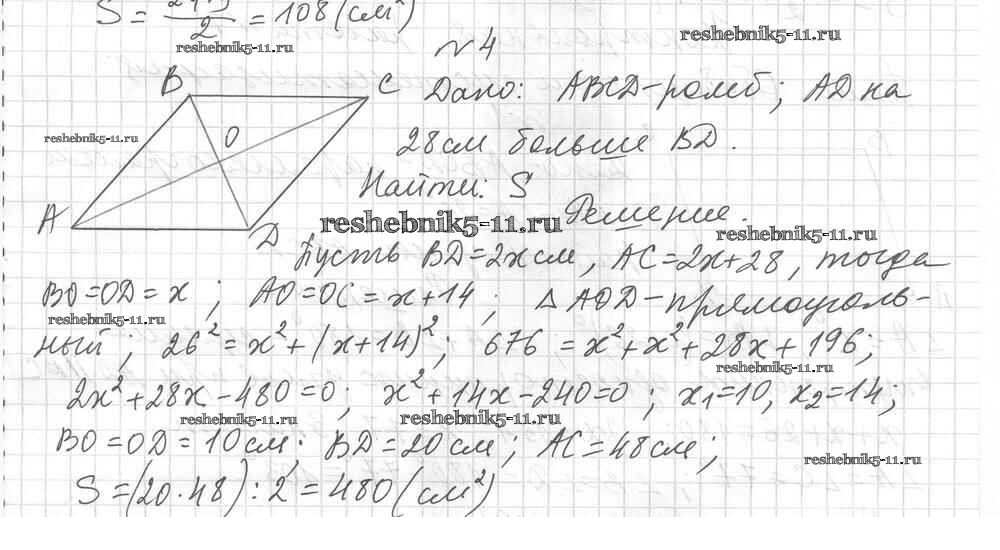 S = 24·9/2 = 108 (см²)
reshebnik5-11.ru
reshebnik5-11.ru
№4
B
C
Дано: ABCD-ромб; AD на
reshebnik5-11.ru
O
28см больше BD.
Найти: S
A
D
reshebnik5-11.ru
Решение.
reshebnik5-11.ru
Пусть BD=2x см, AC=2x+28, тогда
BO=OD=x; AO=OC=x+14; △AOD-прямоуголь-
reshebnik5-11.ru
ный; 26²=x²+(x+14)²; 676=x²+x²+28x+196;
reshebnik5-11.ru
2x²+28x-480=0; x²+14x-240=0; x₁=10, x₂=14;
reshebnik5-11.ru
reshebnik5-11.ru
BO=OD=10см; BD=20см; AC=48см;
reshebnik5-11.ru
S=(20·48):2=480(см²)